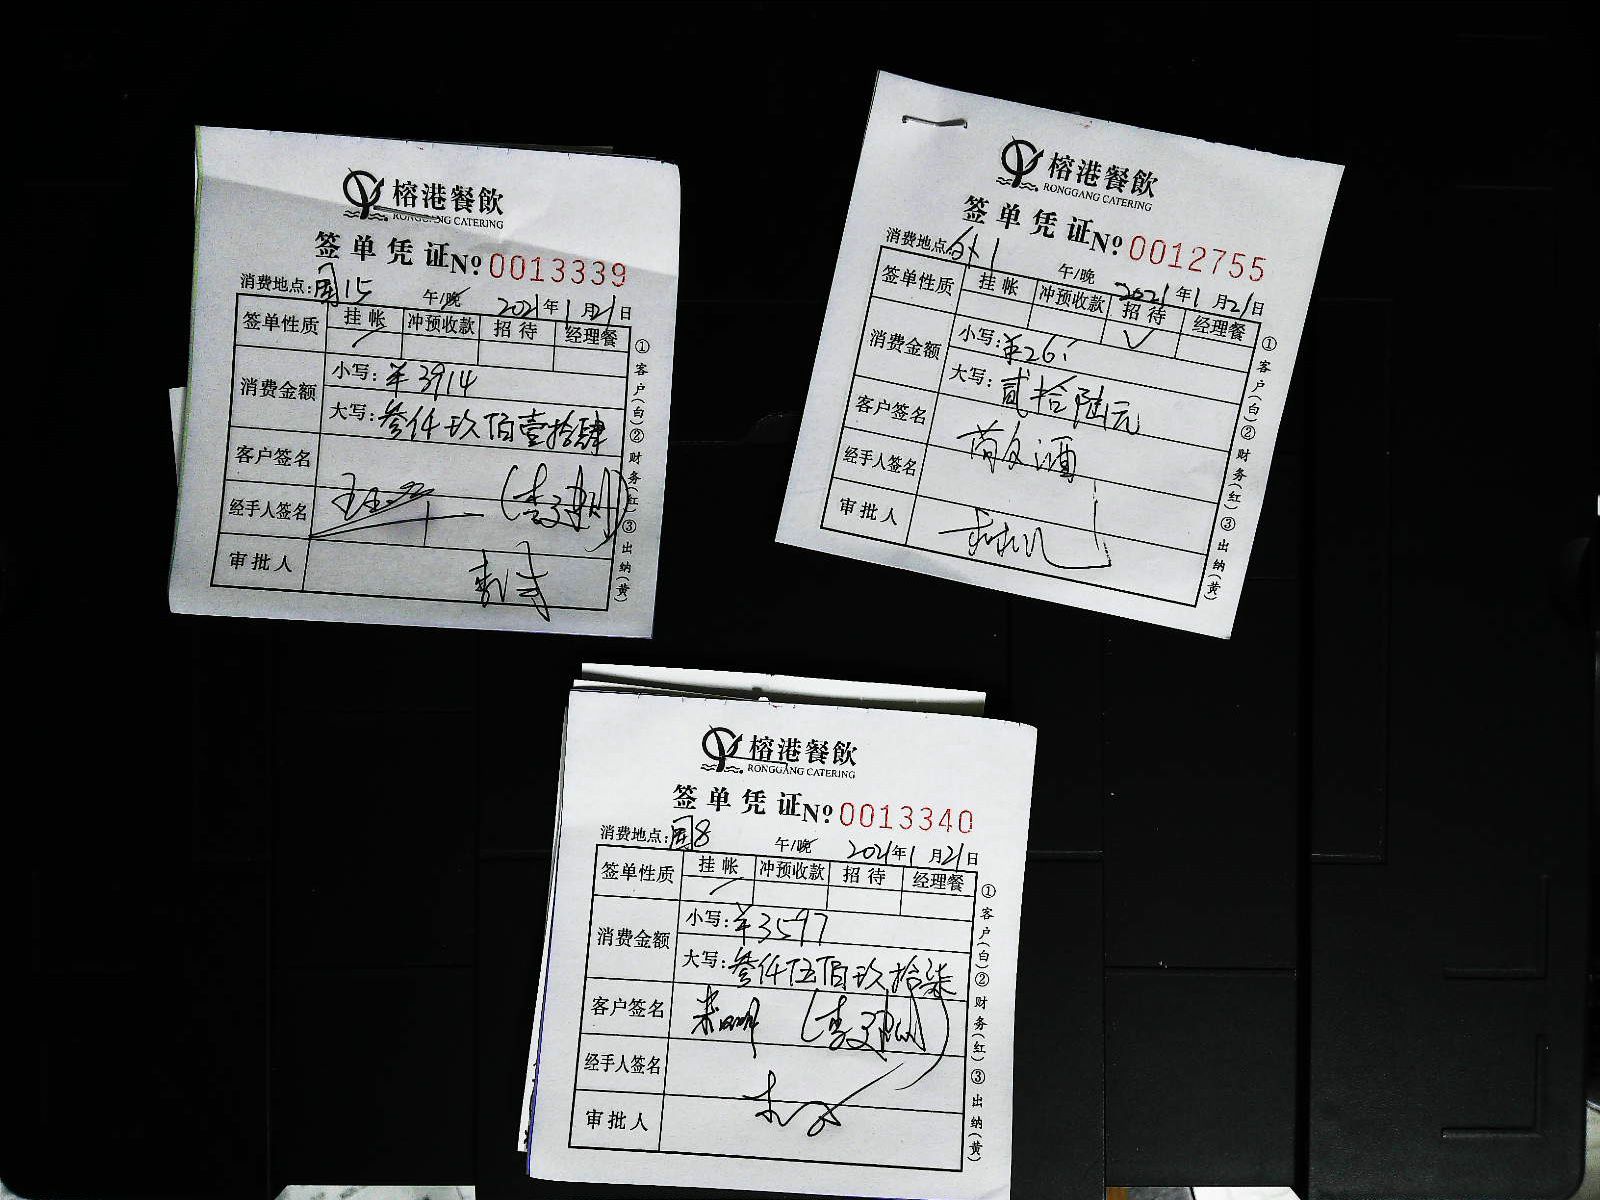 榕港餐飲
RONGGANG CATERING
签单凭证 Nº 0013339
消费地点:周15 午/晚 2021年1月21日
签单性质 挂帐 冲预收款 招待 经理餐
消费金额 小写:¥3914
大写:叁仟玖佰壹拾肆
客户签名
经手人签名
审批人
①客户(白)②财务(红)③出纳(黄)
榕港餐飲
RONGGANG CATERING
签单凭证 Nº 0012755
消费地点:外1 午/晚 2021年1月21日
签单性质 挂帐 冲预收款 招待 经理餐
消费金额 小写:¥26
大写:贰拾陆元
客户签名
经手人签名
审批人
①客户(白)②财务(红)③出纳(黄)
榕港餐飲
RONGGANG CATERING
签单凭证 Nº 0013340
消费地点:周8 午/晚 2021年1月21日
签单性质 挂帐 冲预收款 招待 经理餐
消费金额 小写:¥3597
大写:叁仟伍佰玖拾柒
客户签名
经手人签名
审批人
①客户(白)②财务(红)③出纳(黄)